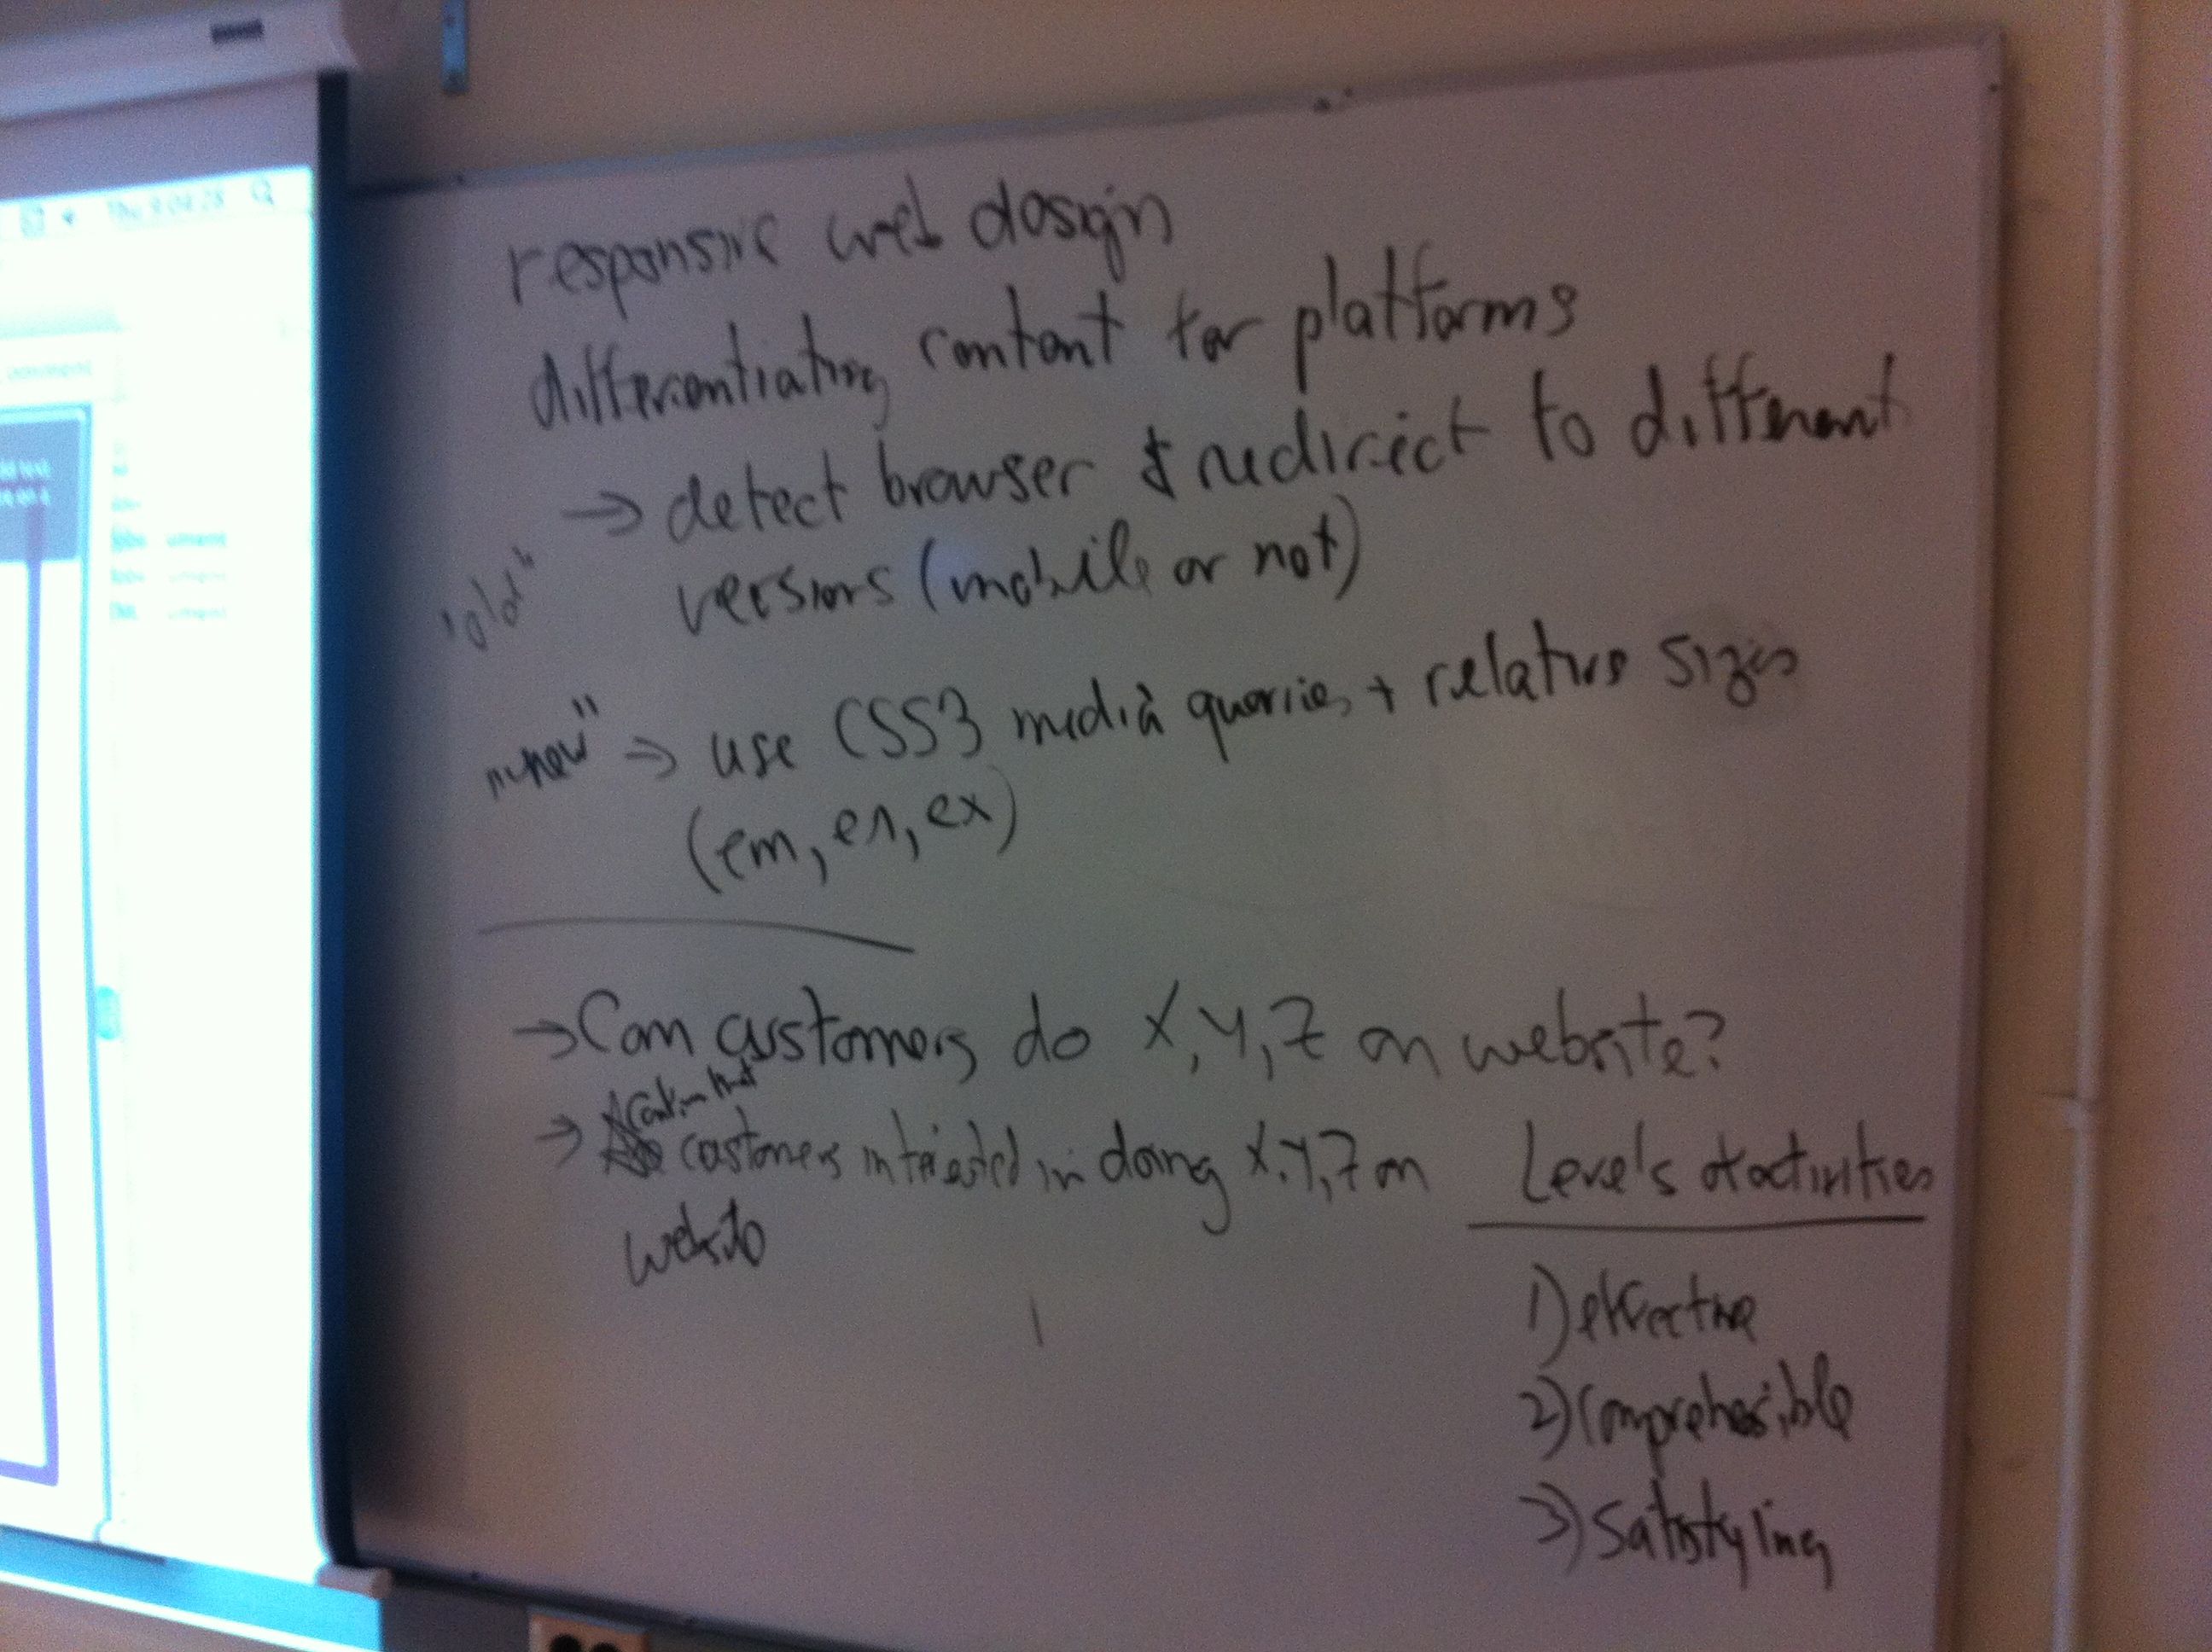 Thu 9:04:28
responsive web design
differentiating content for platforms
→ detect browser & redirect to different
"old"
versions (mobile or not)
"new" → use CSS3 media queries + relative sizes
(em, en, ex)
→ Can customers do X, Y, Z on website?
→ customers interested in doing X, Y, Z on
website
Levels of activities
1) effective
2) comprehesible
3) satisfying